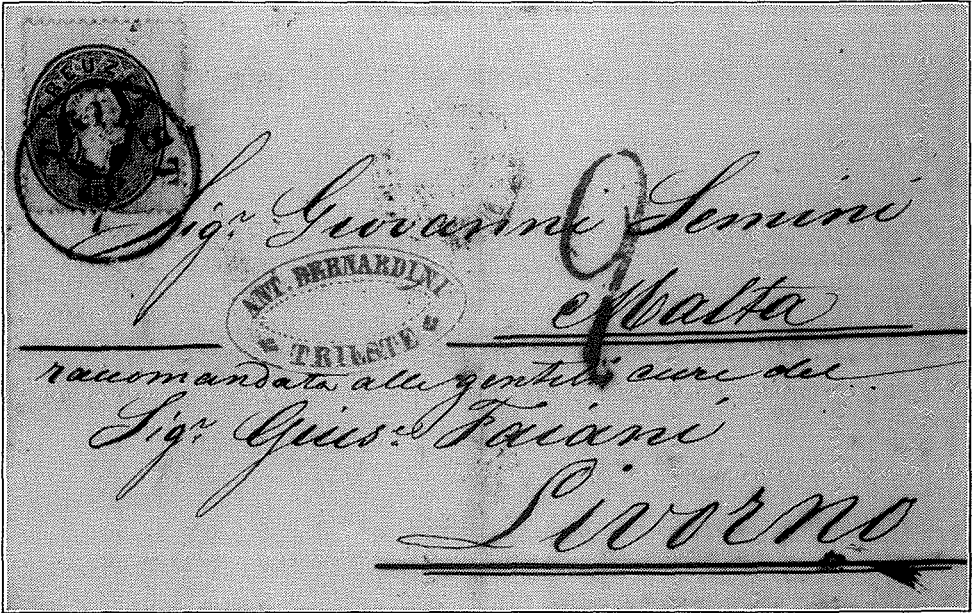 KREUZER
Sigr. Giovanni Semini
9
Malta
ANT. BERNARDINI
TRIESTE
raccomandata alle gentili cure del
Sigr. Gius.e Faiani
Livorno